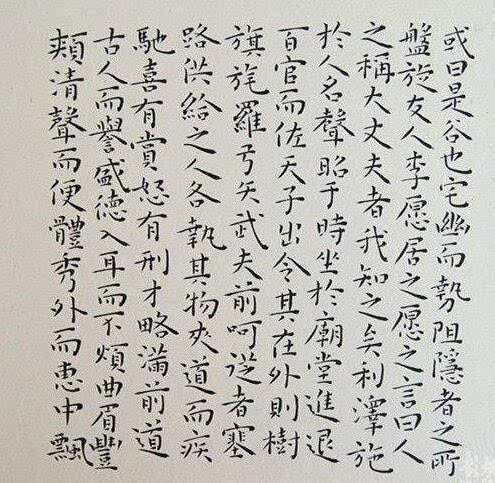 或曰是谷也宅幽而勢阻隱者之所
盤旋友人李愿居之愿之言曰人
之稱大丈夫者我知之矣利澤施
於人名聲昭于時坐於廟堂進退
百官而佐天子出令其在外則樹
旗旄羅弓矢武夫前呵從者塞
路供給之人各執其物夾道而疾
馳喜有賞怒有刑才略滿前道
古人而譽盛德入耳而不煩曲眉豐
頰清聲而便體秀外而惠中飄